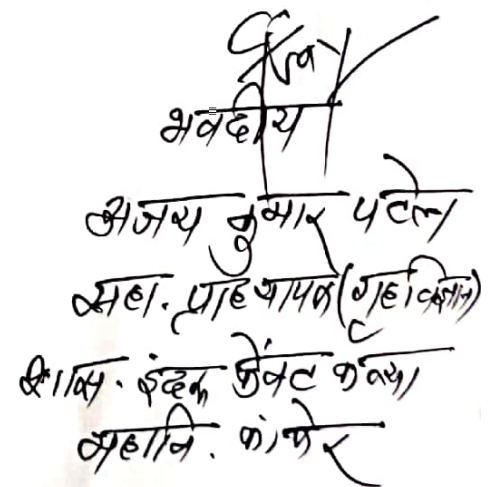 भवदीय
अजय कुमार पटेल
सहा. प्राध्यापक (गृहविज्ञान)
शास. इंदरू केंवट कन्या
महावि. कांकेर